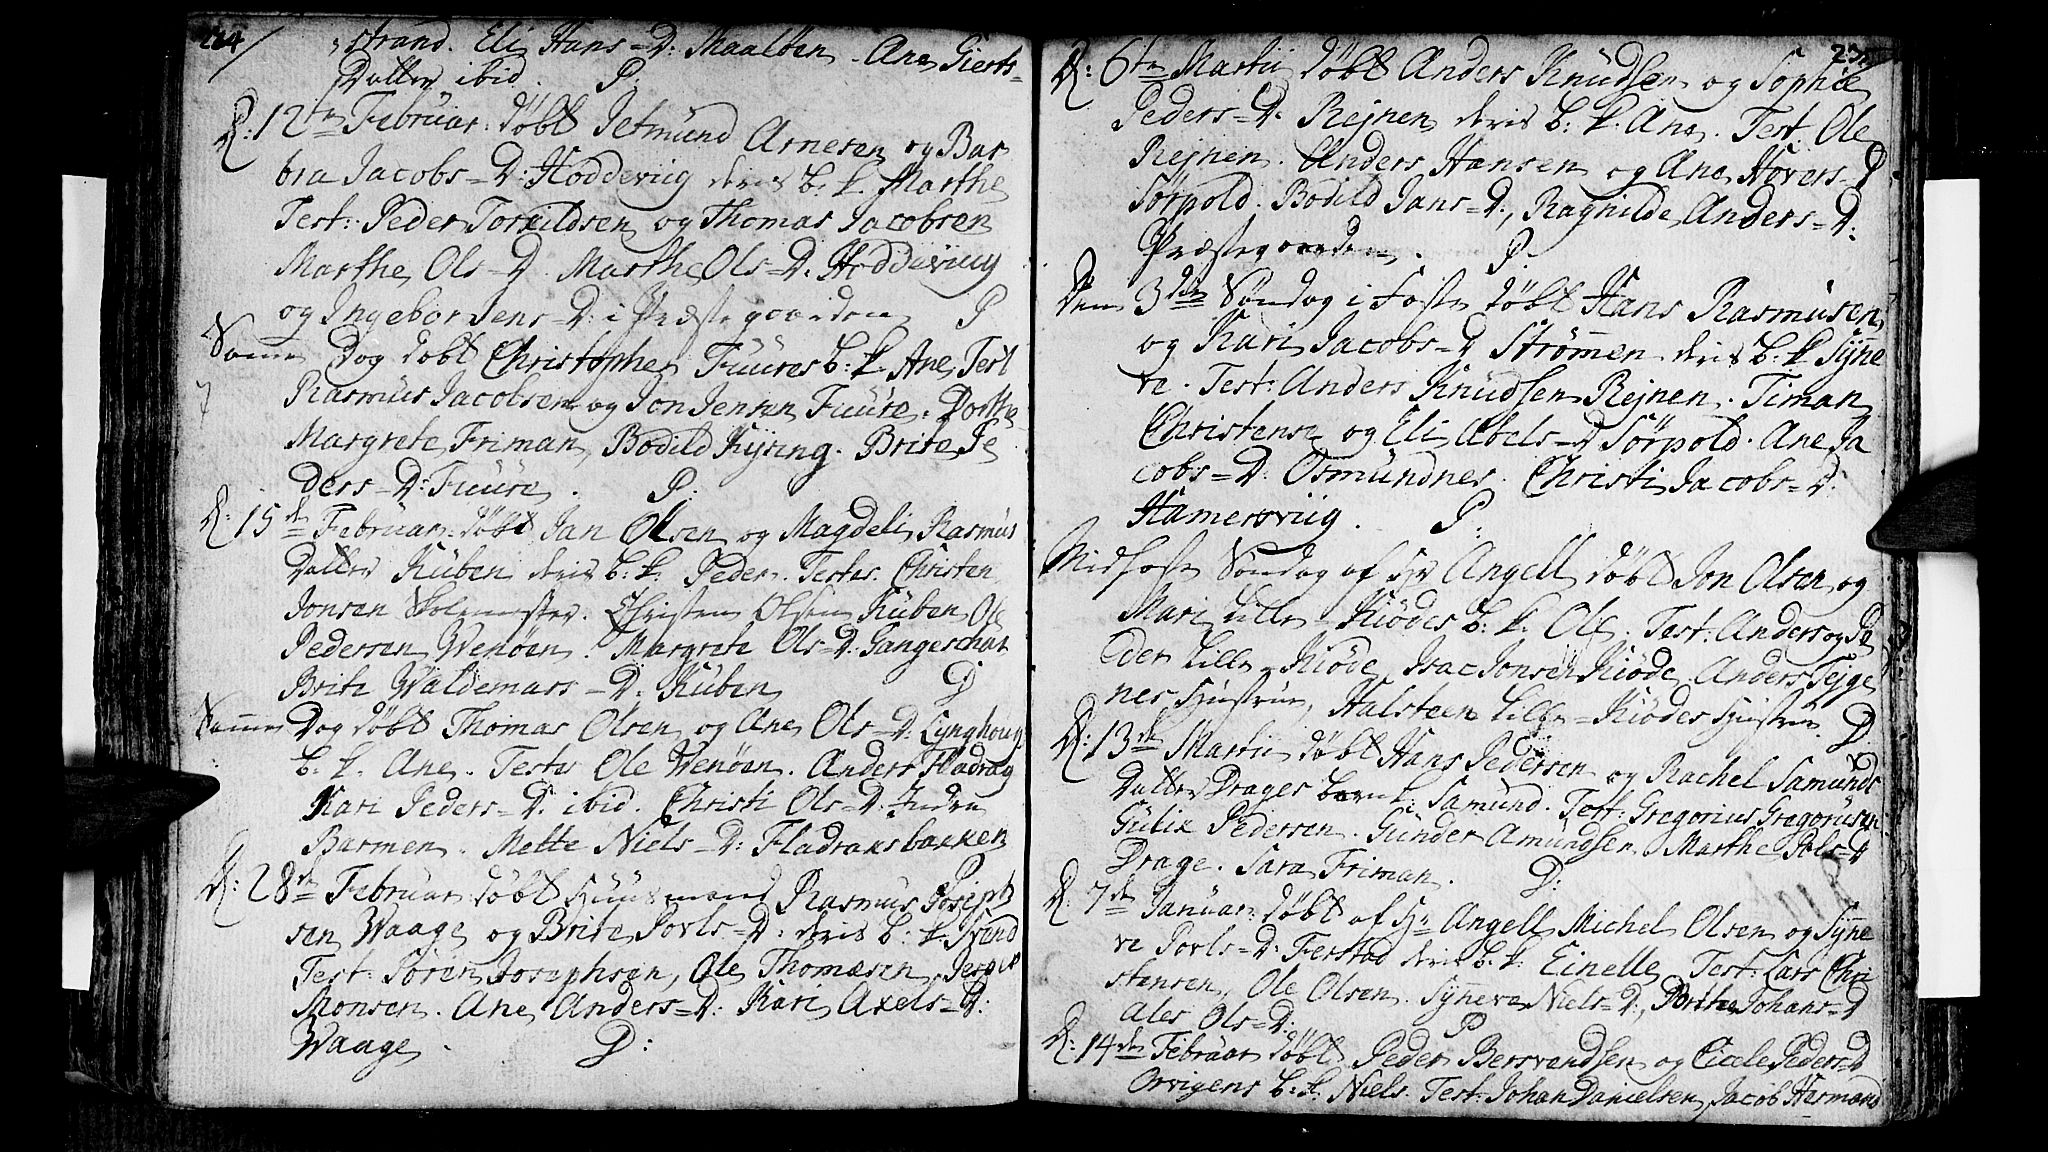 224
strand. Eli Hans=D: Maalben. Ane Gierts=
Datter ibid. P.
D: 12te Februar: døbt Jetmund Arnesen og Bar
bra Jacobs=D: Hoddeviig deris b: k. Marthe
Test: Peder Torkildsen og Thomas Jacobsen
Marthe Ols=D. Marthe Ols=D. Hoddeviig
og Ingebor Jens=D: i Præstegaarden P
Samme Dag døbt Christopher Fuures b: k Ane, Test
Rasmus Jacobsen og Jon Jensen Fuure. Dorthe
Margrete Friman, Bodild Kysing. Brite Pe
ders=D: Fuure. P.
D: 15de Februar: døbt Jan Olsen og Magdeli Rasmus
Datter Kuben deris b: k. Peder. Testes. Christen
Jonsen Skolemester. Christen Olsen Kuben Ole
Pedersen Wenøen. Margrete Ols=D: Gangeschar
Brite Waldemars=D: Kuben D
Samme Dag døbt Thomas Olsen og Ane Ols=D: Lynghoug
b: k. Ane. Testes Ole Wenøen. Anders Fladrag
Kari Peders=D: ibid. Christi Ols=D. Indre
Barmen. Mette Niels=D: Fladraksbakken
D: 28de Februar døbt Huusmand Rasmus Joseph
sen Waage og Brite Povls=D: deris b: k. Svend
Test: Søren Josephsen, Ole Thomæsen,
Monsen. Ane Anders=D: Kari Axels=D:
Waage. D:
D: 6te Martii døbt Anders Knudsen og Sophie
Peders=D: Rejnen deris b: k. Ane. Test: Ole
Rejnen. Anders Hansen og Ane Hovers=D
Sørpold. Bodild Jans=D:, Ragnilde Anders=D:
Præstegaarden. P.
Dom 3die Søndag i Faste døbt Hans Rasmusen
og Kari Jacobs=D Strømen deris b: k Synne
ve. Test: Anders Knudsen Rejnen. Timan
Christense og Eli Abels=D Sørpold. Ane Ja
cobs=D: Osmundnes. Christi Jacobs=D:
Hamersviig. P:
Midfaste Søndag af Hr Angell døbt Jon Olsen og
Mari Lille=Kiødes b: k. Ole. Test: Anders og Pe
der Lille=Kiøde, Isac Jonsen Kiøde. Anders Tejge
nes Hustrue, Halsteen Lille=Kiødes Hustrue D
D: 13de Martii døbt Hans Pedersen og Rachel Samunds
Datter Drages barn k. Samund. Test: Gregorius Gregoriusen
Gulik Pedersen. Gunder Amundsen. Marthe Pols=D
Drage. Sara Friman. D:
D. 7de Januar: døbt af Hr Angell Michel Olsen og Synne
ve Povls=D: Ferstad deris b: k. Einelle, Test: Lars Chri
stensen, Ole Olsen. Synneva Niels=D:, Brithe Johans=D
Ales Ols=D: P
D: 14de Februar døbt Peder Bersvendsen og Cicele Peders=D
Orvigens b: k. Niels. Test: Johan Danielsen, Jacob Harmand